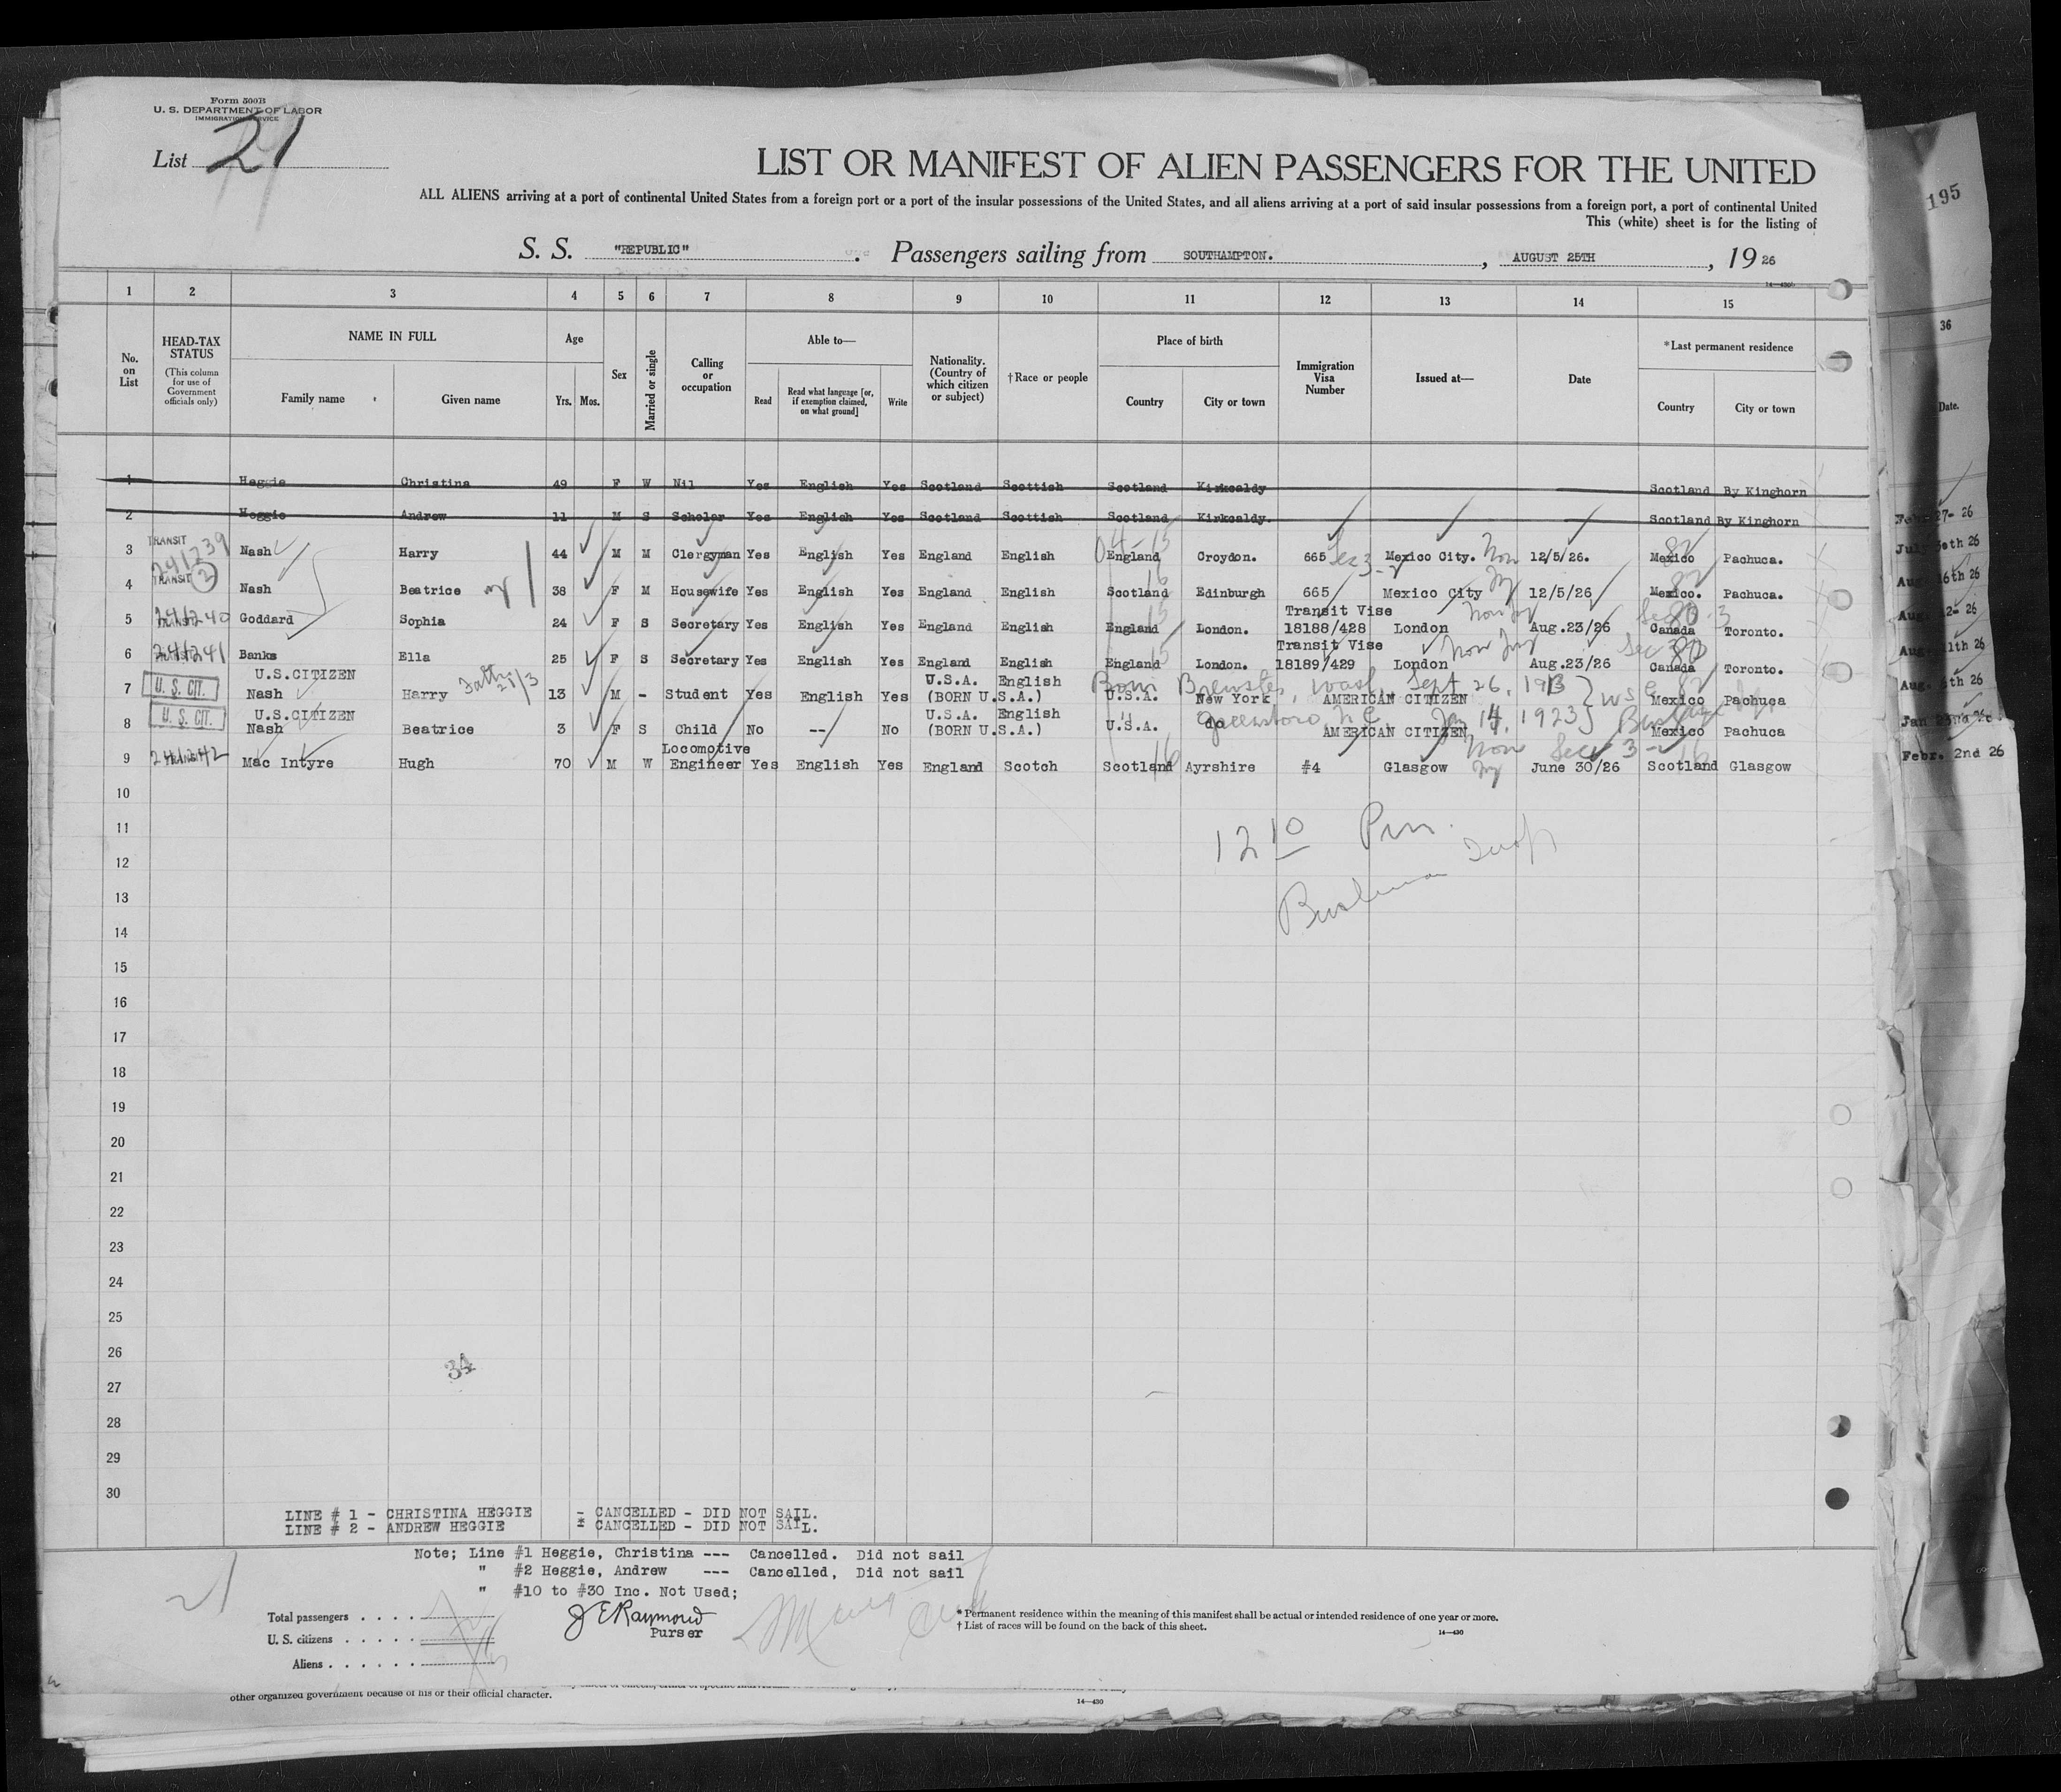 Form 500B
U. S. DEPARTMENT OF LABOR
IMMIGRATION SERVICE
List 21
LIST OR MANIFEST OF ALIEN PASSENGERS FOR THE UNITED
ALL ALIENS arriving at a port of continental United States from a foreign port or a port of the insular possessions of the United States, and all aliens arriving at a port of said insular possessions from a foreign port, a port of continental United
This (white) sheet is for the listing of
195
S. S. "REPUBLIC" Passengers sailing from SOUTHAMPTON. , AUGUST 25TH , 19 26
14—430
1 2 3 4 5 6 7 8 9 10 11 12 13 14 15
36
No. on List
HEAD-TAX STATUS
(This column for use of Government officials only)
NAME IN FULL
Family name Given name
Age
Yrs. Mos.
Sex
Married or single
Calling or occupation
Able to—
Read
Read what language [or, if exemption claimed, on what ground]
Write
Nationality. (Country of which citizen or subject)
†Race or people
Place of birth
Country City or town
Immigration Visa Number
Issued at—
Date
*Last permanent residence
Country City or town
Date.
1 Heggie Christina 49 F W Nil Yes English Yes Scotland Scottish Scotland Kirkcaldy Scotland By Kinghorn
2 Heggie Andrew 11 M S Scholar Yes English Yes Scotland Scottish Scotland Kirkcaldy. Scotland By Kinghorn
TRANSIT 241239
3 Nash Harry 44 M M Clergyman Yes English Yes England English England Croydon. 665 Mexico City. 12/5/26. Mexico Pachuca.
TRANSIT 2
4 Nash Beatrice 38 F M Housewife Yes English Yes England English Scotland Edinburgh 665 Mexico City 12/5/26 Mexico. Pachuca.
Transit Vise
5 241240 Goddard Sophia 24 F S Secretary Yes English Yes England English England London. 18188/428 London Aug.23/26 Canada Toronto.
Transit Vise
6 241241 Banks Ella 25 F S Secretary Yes English Yes England English England London. 18189/429 London Aug.23/26 Canada Toronto.
U.S.CITIZEN U.S.A. English Born Brewster, Wash, Sept 26, 1913
7 U. S. CIT. Nash Harry 13 M - Student Yes English Yes (BORN U.S.A.) U.S.A. New York AMERICAN CITIZEN Mexico Pachuca
U.S.CITIZEN U.S.A. English Greensboro, N C, Jan 14, 1923
8 U. S. CIT. Nash Beatrice 3 F S Child No --- No (BORN U.S.A.) U.S.A. do AMERICAN CITIZEN Mexico Pachuca
Locomotive
9 241242 Mac Intyre Hugh 70 M W Engineer Yes English Yes England Scotch Scotland Ayrshire #4 Glasgow June 30/26 Scotland Glasgow
Febr. 2nd 26
10
11
12 10 Pm.
12
13
14
15
16
17
18
19
20
21
22
23
24
25
26
34
27
28
29
30
LINE # 1 - CHRISTINA HEGGIE - CANCELLED - DID NOT SAIL.
LINE # 2 - ANDREW HEGGIE - CANCELLED - DID NOT SAIL.
Note; Line #1 Heggie, Christina --- Cancelled. Did not sail
" #2 Heggie, Andrew --- Cancelled, Did not sail
" #10 to #30 Inc. Not Used;
21
Total passengers . . . .
U. S. citizens . . . . .
Aliens . . . . . .
J E Raymond
Purser
* Permanent residence within the meaning of this manifest shall be actual or intended residence of one year or more.
† List of races will be found on the back of this sheet.
14—430
other organized government because of his or their official character.
14—430